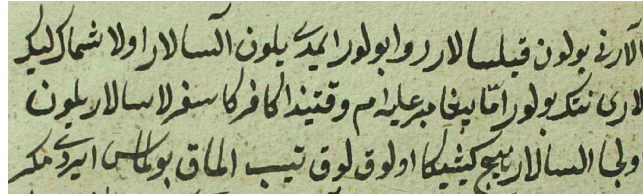 آلارنی یولون قیلسالار روا بولور ایمدی یلون آلسالار اولاشماك لیكر
لاری نتك بولور امّا پیغامبر علیه‌ام وقتیندا كافركا سفرلاسالار یلون
ولجا السالار هیچ كشیكا اولوق لوق تیب الماق بولماس ایردی مكر